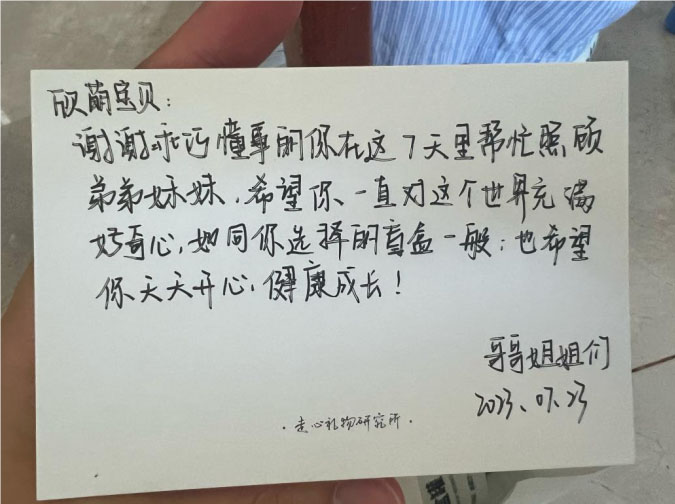 欣萌宝贝：
谢谢乖巧懂事的你在这7天里帮忙照顾
弟弟妹妹，希望你一直对这个世界充满
好奇心，如同你选择的盲盒一般；也希望
你天天开心，健康成长！
哥哥姐姐们
2023.07.23
·走心礼物研究所·